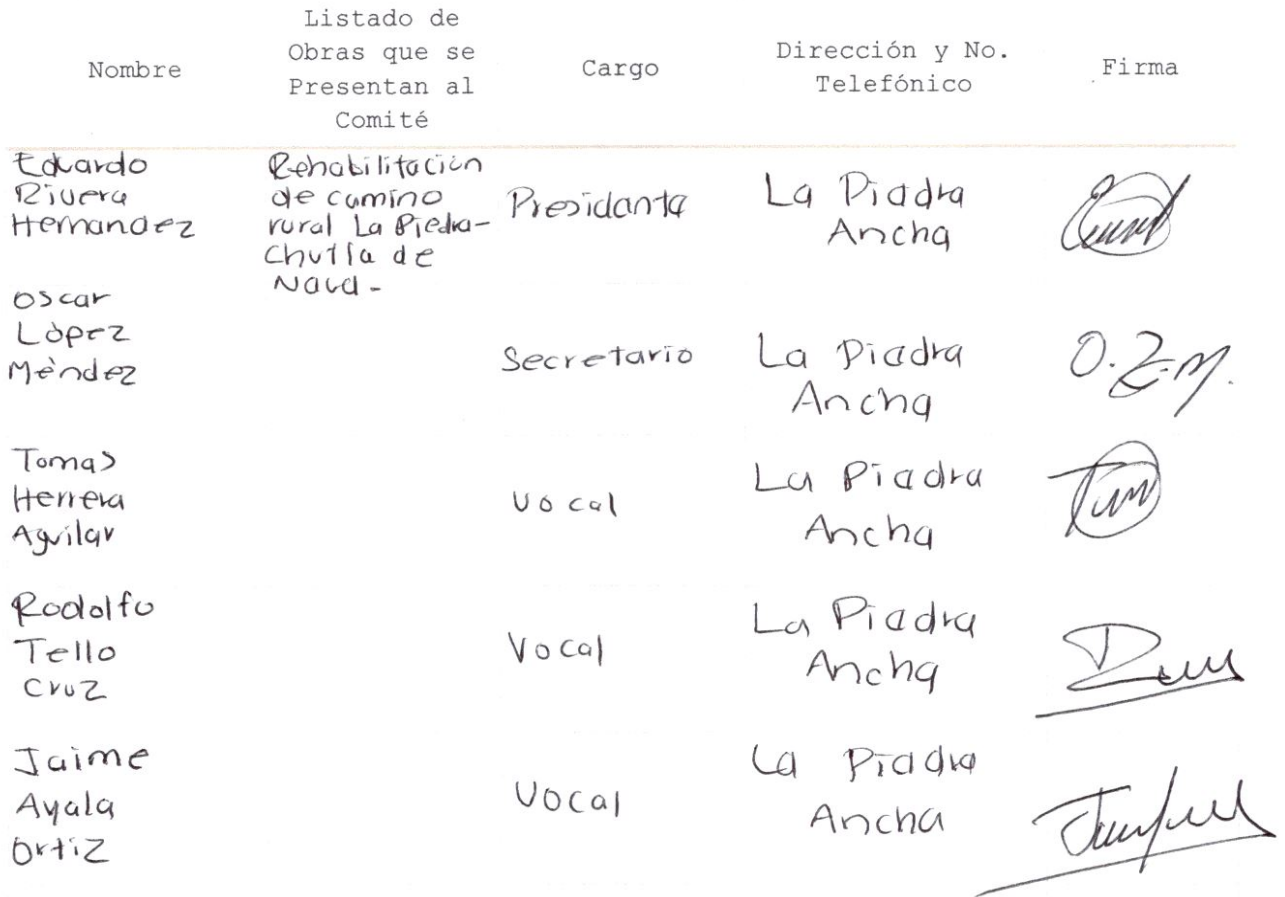 Nombre
Listado de
Obras que se
Presentan al
Comité
Cargo
Dirección y No.
Telefónico
Firma
Eduardo
Rivera
Hernandez
Rehabilitación
de camino
rural La Piedra-
Chutla de
Nava-
Presidanta
La Piadra
Ancha
Oscar
López
Méndez
Secretario
La Piadra
Ancha
O.Z.M.
Tomas
Herrera
Aguilar
Vocal
La Piadra
Ancha
Rodolfo
Tello
Cruz
Vocal
La Piadra
Ancha
Jaime
Ayala
Ortiz
Vocal
La Piadra
Ancha